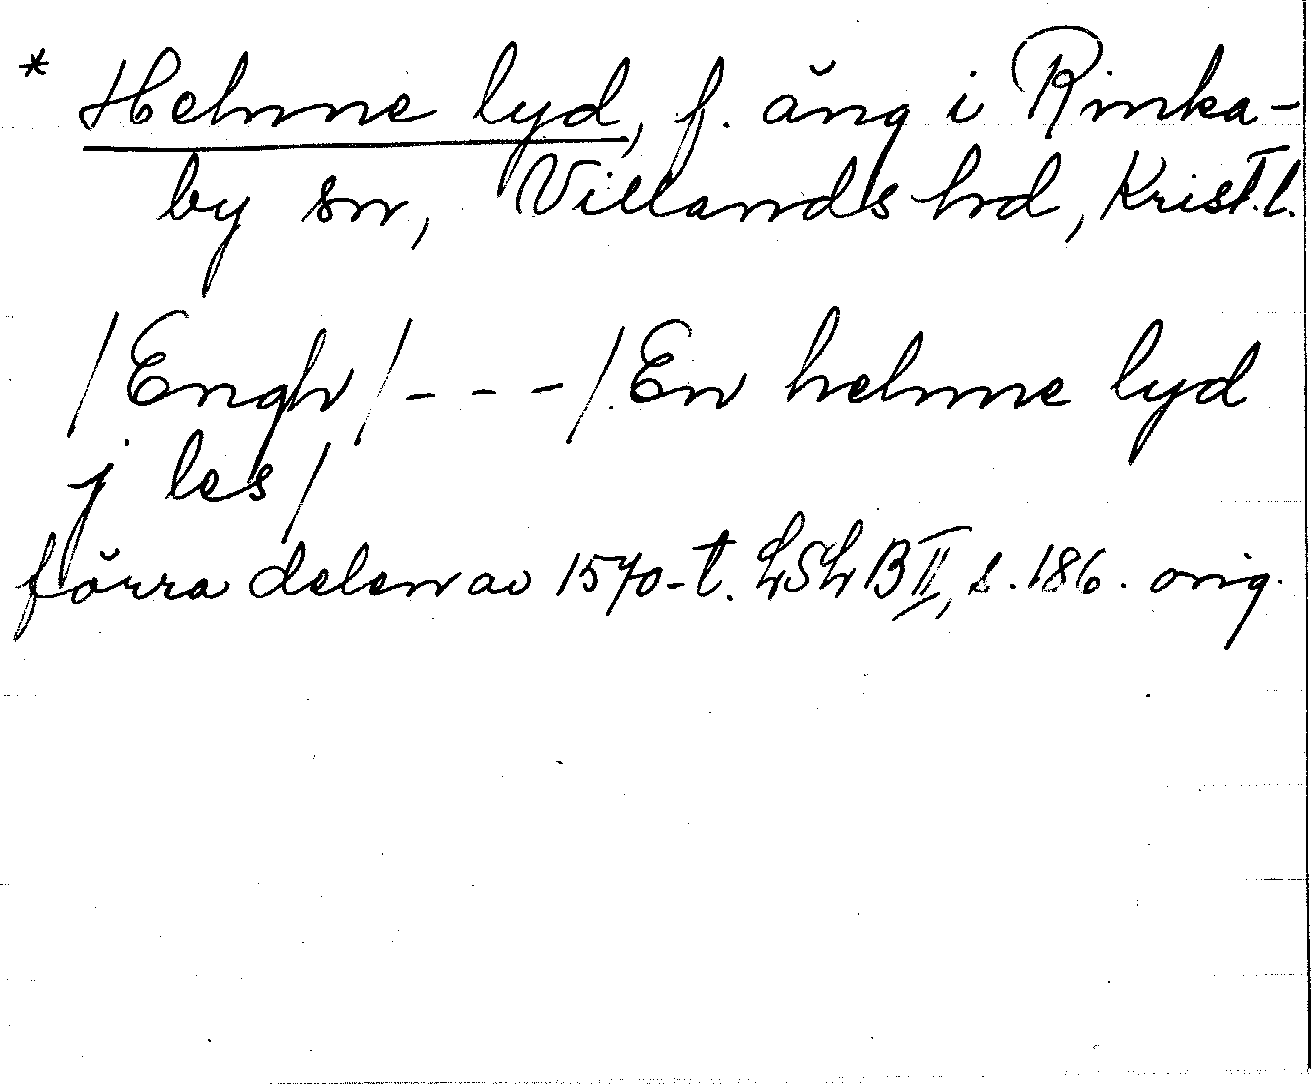 * Helmne lyd, f. äng i Rinka-
by sn, Villands hd, Krist. l.
/Engh/ - - - /En helmne lyd
j les/
förra delen av 1570-t. LSLB II, s. 186. orig.